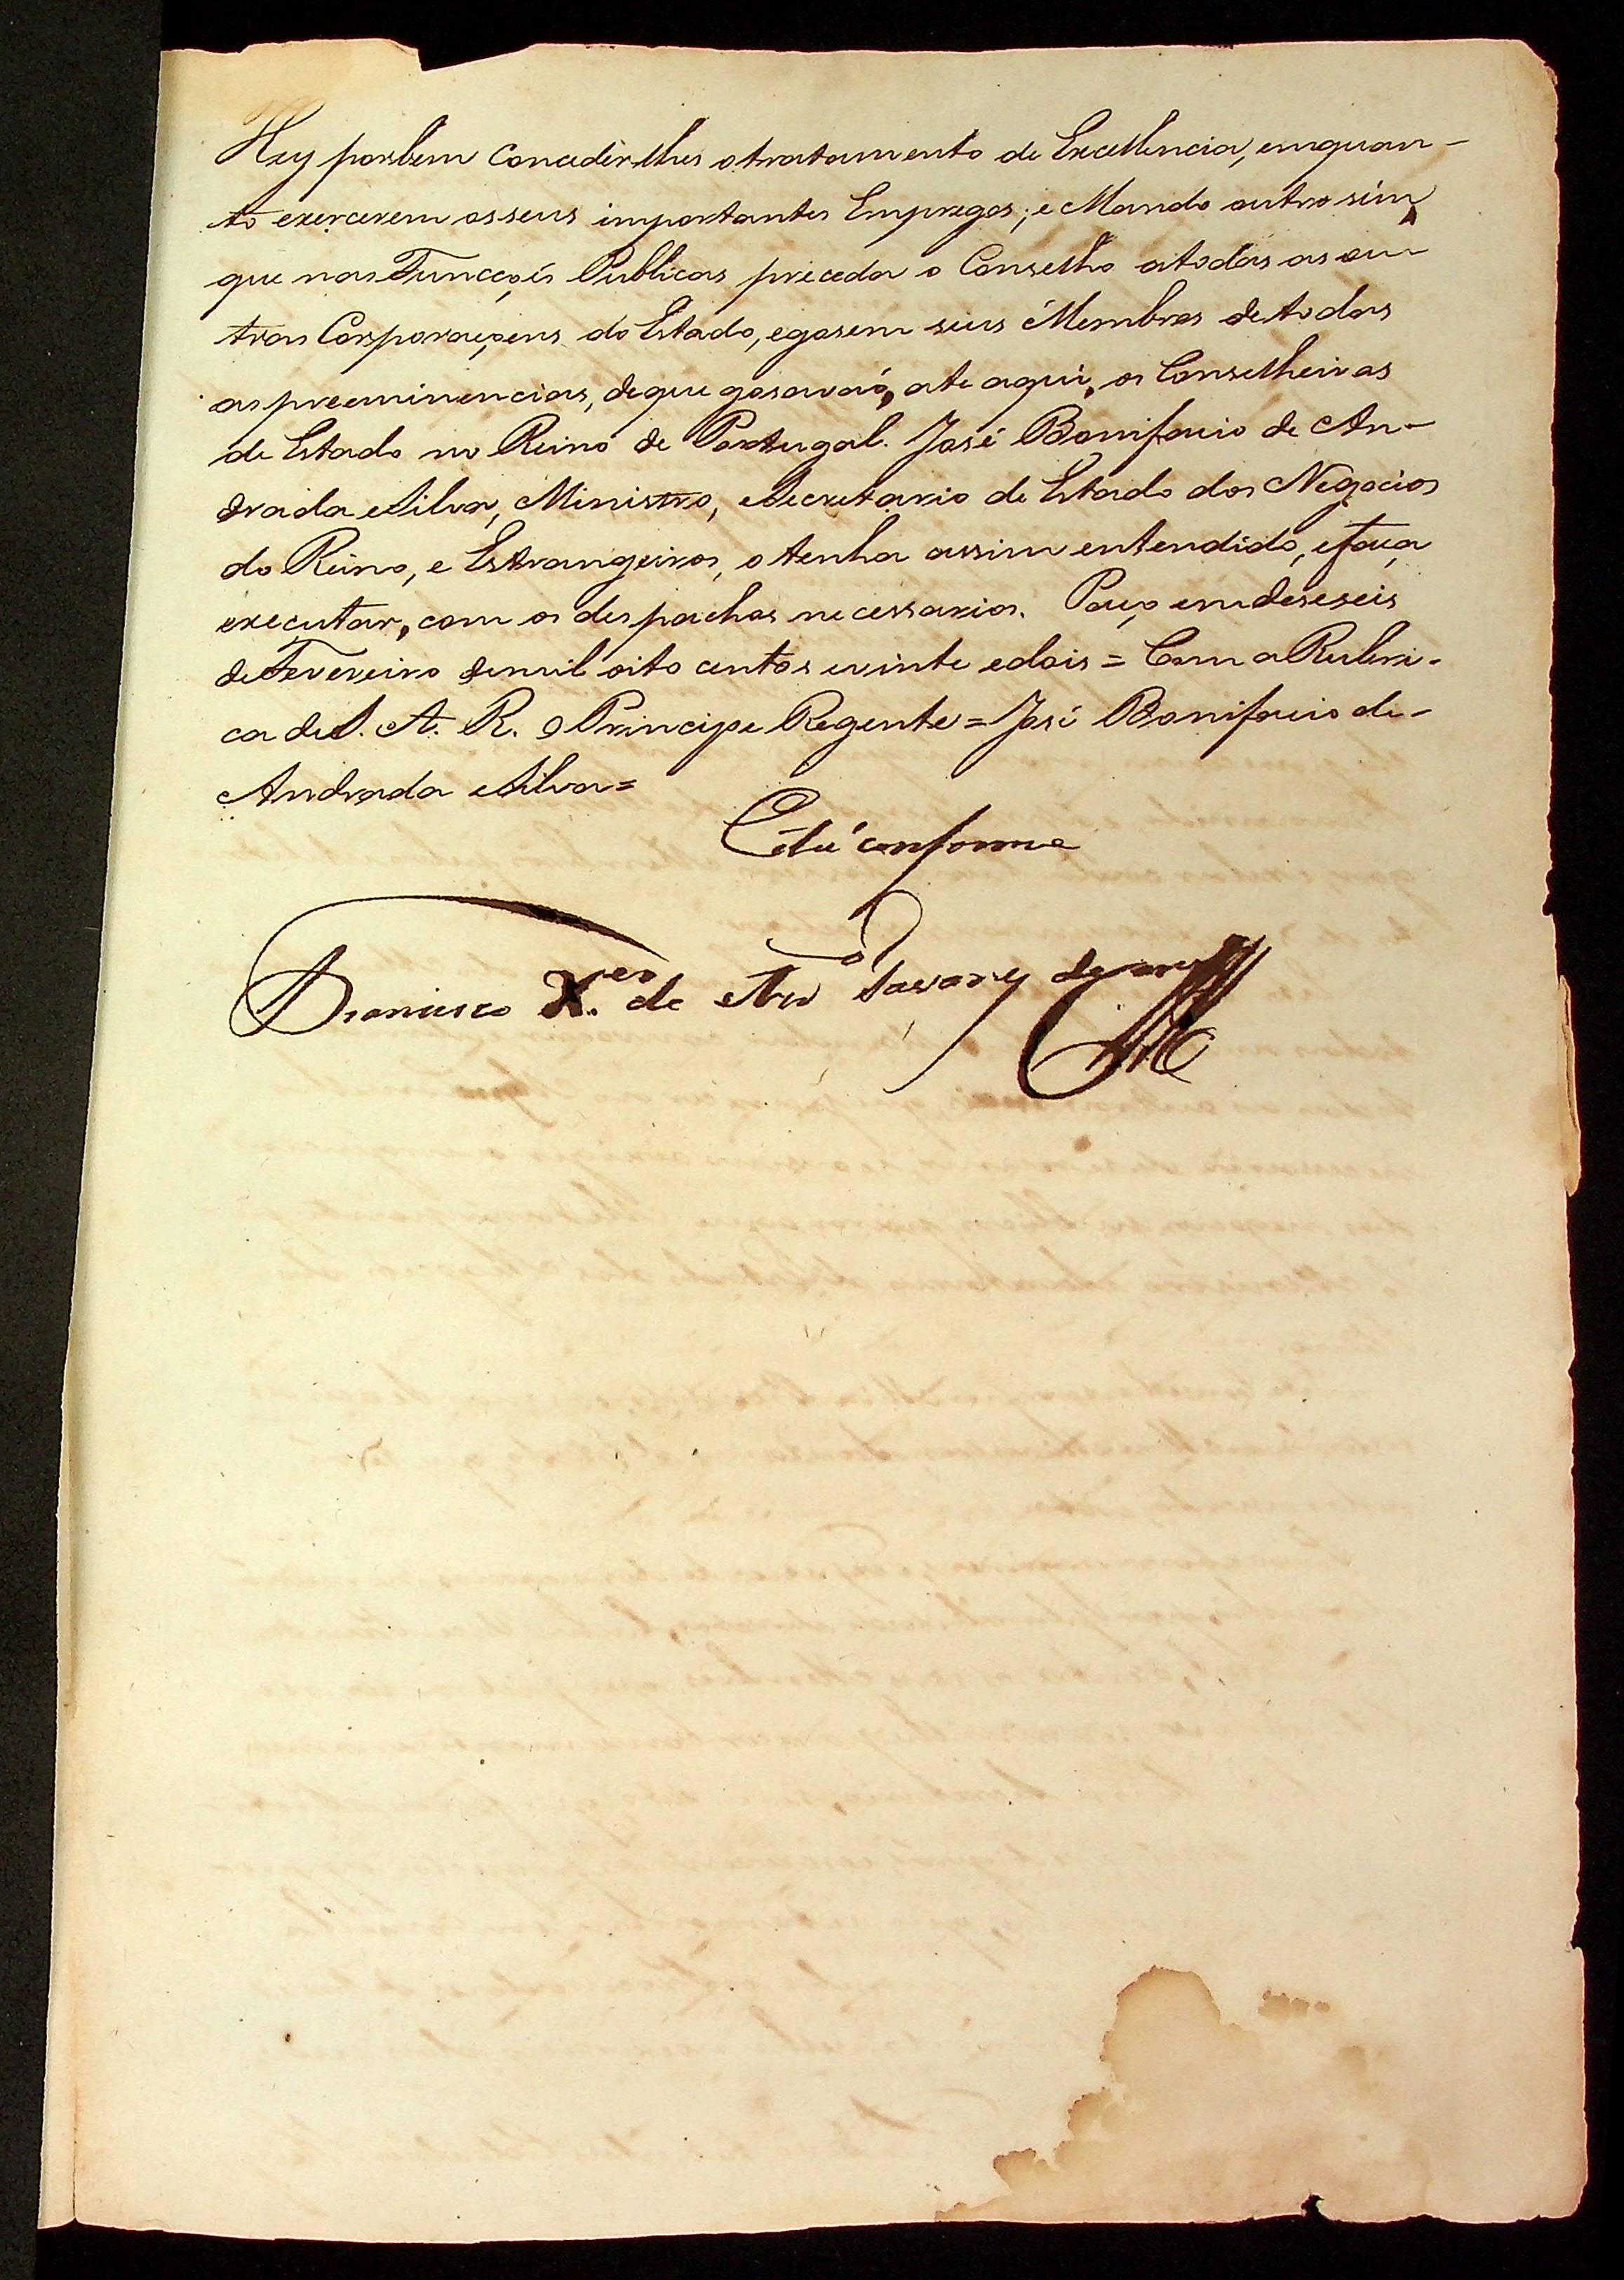 Hey porbem Concederlhes otratamento de Excellencia, emquan-
to exercerem osseus importantes Empregos; e Mando outro sim,
que nas Funcçoẽs Publicas preceda o Conselho atodas as ou-
tras Corporaçoens do Estado, egosem seus Membros detodas
as preeminencias, deque gosavaõ, ate aqui, os Conselheiros
de Estado no Reino de Portugal. José Bonifacio de An-
drada eSilva, Ministro, eSecretario de Estado dos Negocios
do Reino, e Estrangeiros, o tenha assim entendido, efaça
executar, com os despachos necessarios. Paço em deseseis
deFevereiro demil oito centos evinte edois = Com a Rubri-
ca deS. A. R. o Principe Regente = José Bonifacio de
Andrada eSilva =
Está conforme
Francisco X.er de